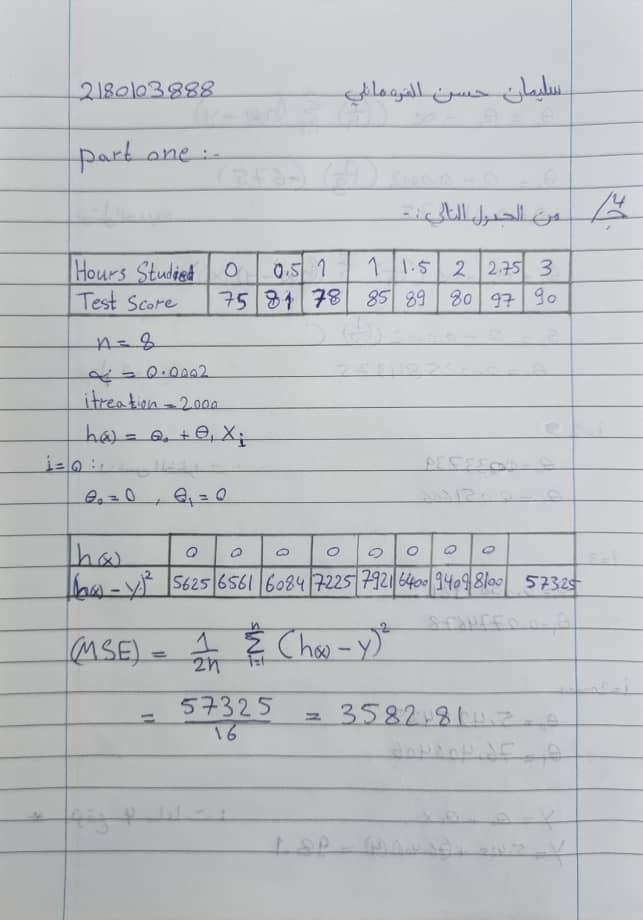 2180103888 سليمان حسن
part one :-
ج/4 من الجدول التالي :-
Hours Studied 0 0.5 1 1 1.5 2 2.75 3
Test Score 75 81 78 85 89 80 97 90
n = 8
α = 0.0002
itreation = 2000
h(x) = θ₀ + θ₁ Xᵢ
i = 0 :.
θ₀ = 0 , θ₁ = 0
h(x) 0 0 0 0 0 0 0 0
(h(x) - y)² 5625 6561 6084 7225 7921 6400 9409 8100 57325
(MSE) = 1/2n Σⁿᵢ₌₁ (h(x) - y)²
= 57325/16 = 3582.81